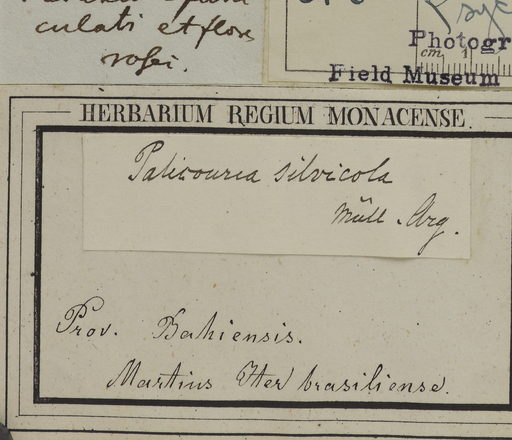 culati et flores
rosei.
Photogr
cm 1
Field Museum
HERBARIUM REGIUM MONACENSE
Palicourea silvicola
Müll. Arg.
Prov. Bahiensis.
Martius Iter brasiliense.